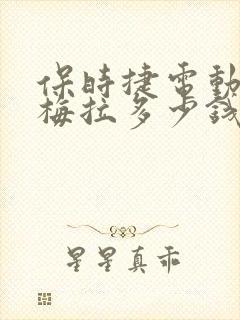 保時捷電動
梅拉多少錢
星星真乖